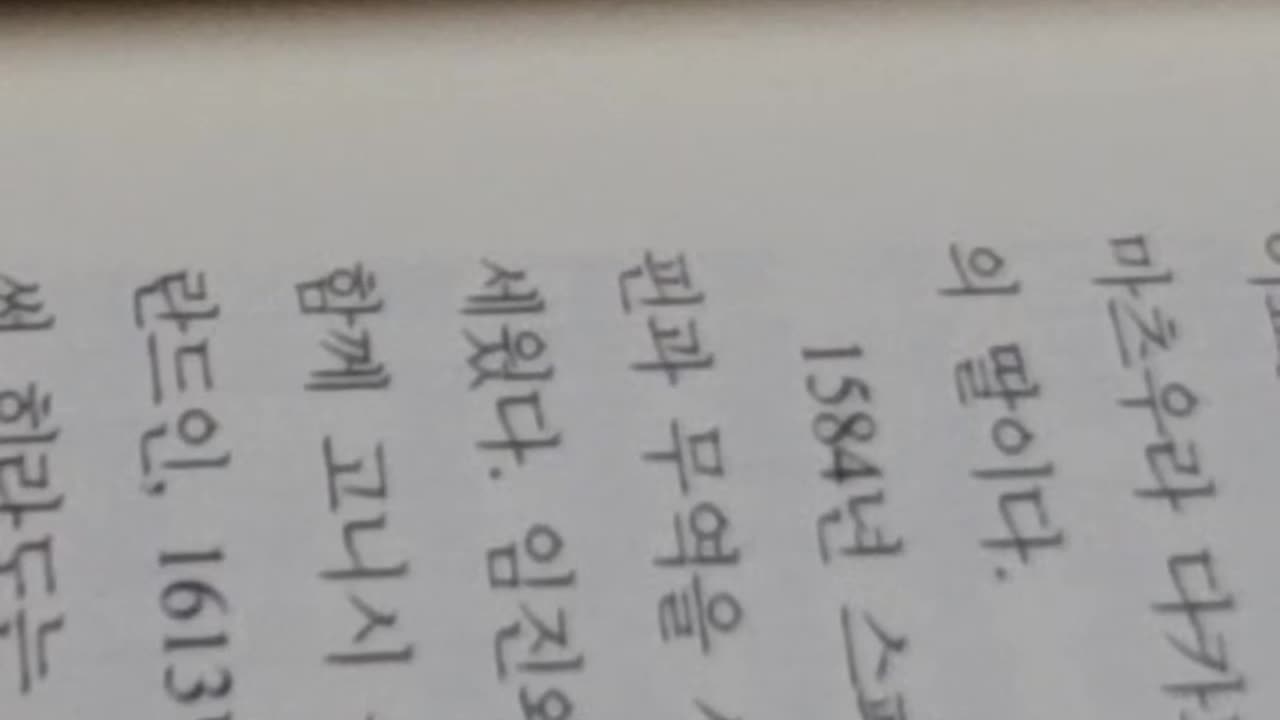 마츠우라 다카
의 딸이다.
1584년 스
판과 무역을
세웠다. 임진
함께 고니시
란드인, 1613
씨 히라도는